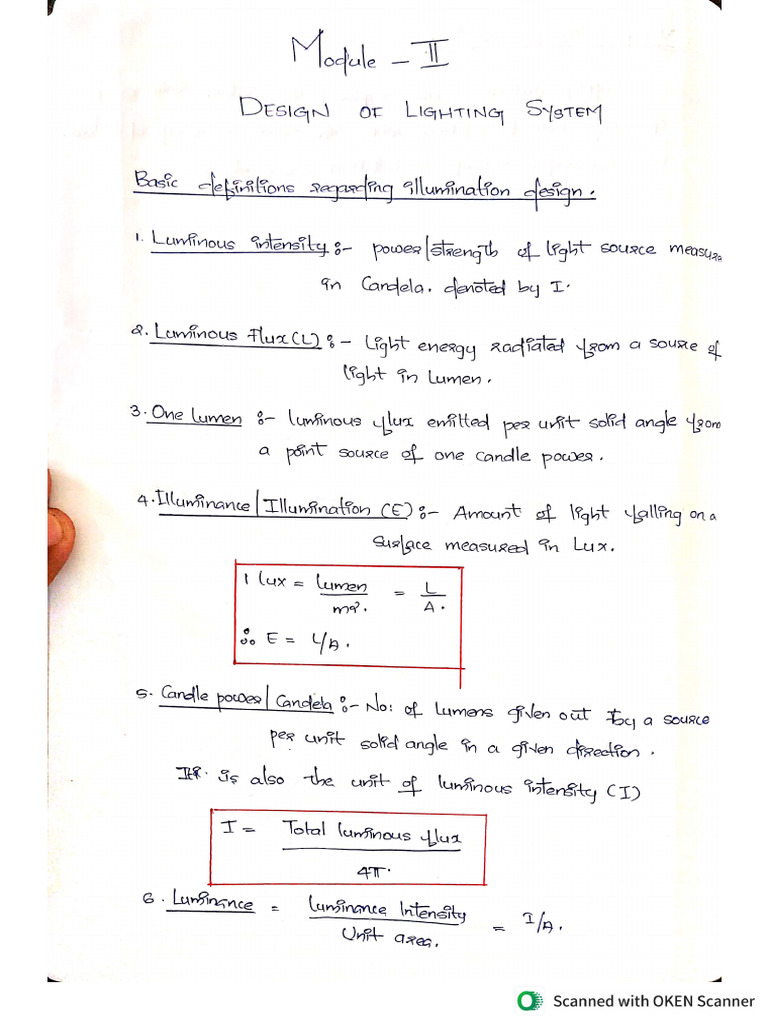 Module - II
DESIGN OF LIGHTING SYSTEM
Basic definitions regarding illumination design.
1. Luminous intensity :- power/strength of light source measure
in Candela. denoted by I.
2. Luminous Flux (L) :- Light energy radiated from a source of
light in Lumen.
3. One lumen :- luminous flux emitted per unit solid angle from
a point source of one candle power.
4. Illuminance/Illumination (E) :- Amount of light falling on a
surface measured in Lux.
1 lux = lumen/m². = L/A.
∴ E = L/A.
5. Candle power/Candela :- No: of lumens given out by a source
per unit solid angle in a given direction.
It is also the unit of luminous intensity (I)
I = Total luminous flux / 4π.
6. Luminance = luminance Intensity / Unit area. = I/A.
Scanned with OKEN Scanner